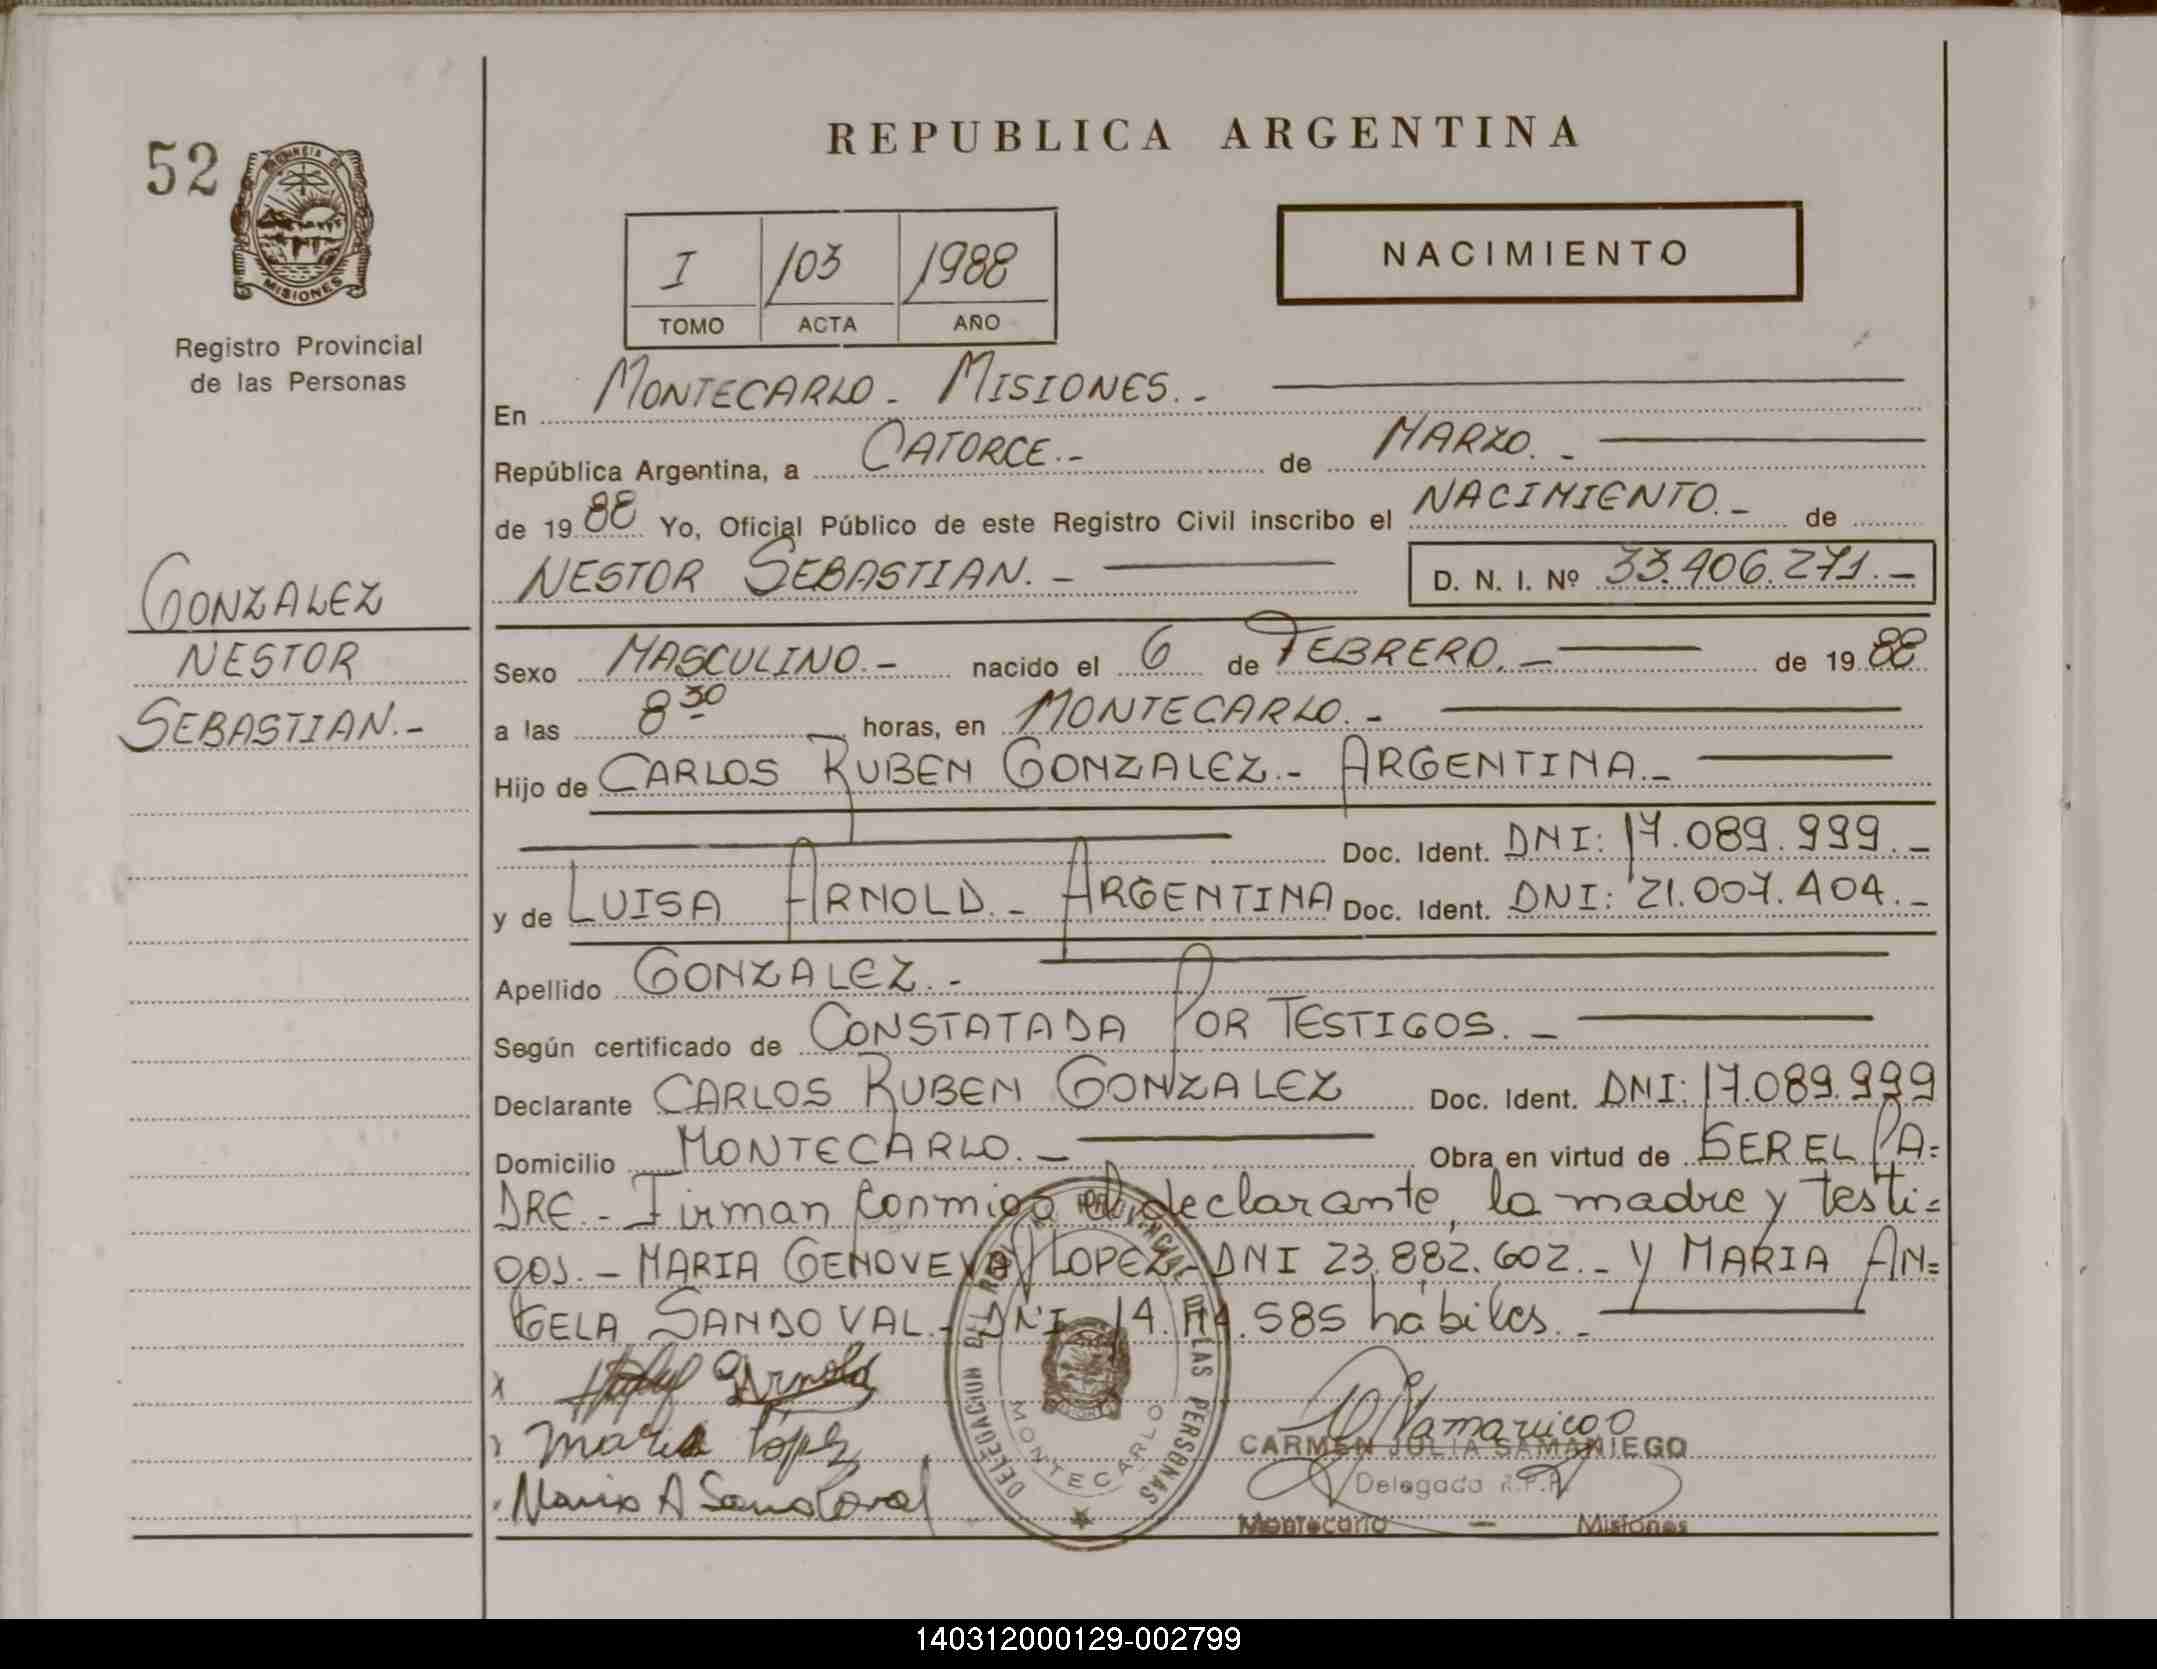 52
PROVINCIA DE
MISIONES
Registro Provincial
de las Personas
GONZALEZ
NESTOR
SEBASTIAN.-
REPUBLICA ARGENTINA
I 103 1988
TOMO ACTA AÑO
NACIMIENTO
En MONTECARLO - MISIONES.-
República Argentina, a CATORCE.- de MARZO.-
de 1988 Yo, Oficial Público de este Registro Civil inscribo el NACIMIENTO.- de
NESTOR SEBASTIAN.- D. N. I. Nº 33.406.271.-
Sexo MASCULINO.- nacido el 6 de FEBRERO.- de 1988
a las 8 30 horas, en MONTECARLO.-
Hijo de CARLOS RUBEN GONZALEZ.- ARGENTINA.-
Doc. Ident. DNI: 17.089.999.-
y de LUISA ARNOLD.- ARGENTINA Doc. Ident. DNI: 21.007.404.-
Apellido GONZALEZ.-
Según certificado de CONSTATADA POR TESTIGOS.-
Declarante CARLOS RUBEN GONZALEZ Doc. Ident. DNI: 17.089.999
Domicilio MONTECARLO.- Obra en virtud de SER EL PA=
DRE.- Firman conmigo el declarante, la madre y testi=
gos.- MARIA GENOVEVA LOPEZ- DNI 23.882.602.- Y MARIA AN=
GELA SANDOVAL.- DNI 14. .585 hábiles.-
x Arnold
Maria López
Maria A Sandoval
DELEGACION DEL REG. PROVINCIAL DE LAS PERSONAS
MONTECARLO
CARMEN JULIA SAMANIEGO
Delegada R.P.P.
Montecarlo - Misiones
140312000129-002799